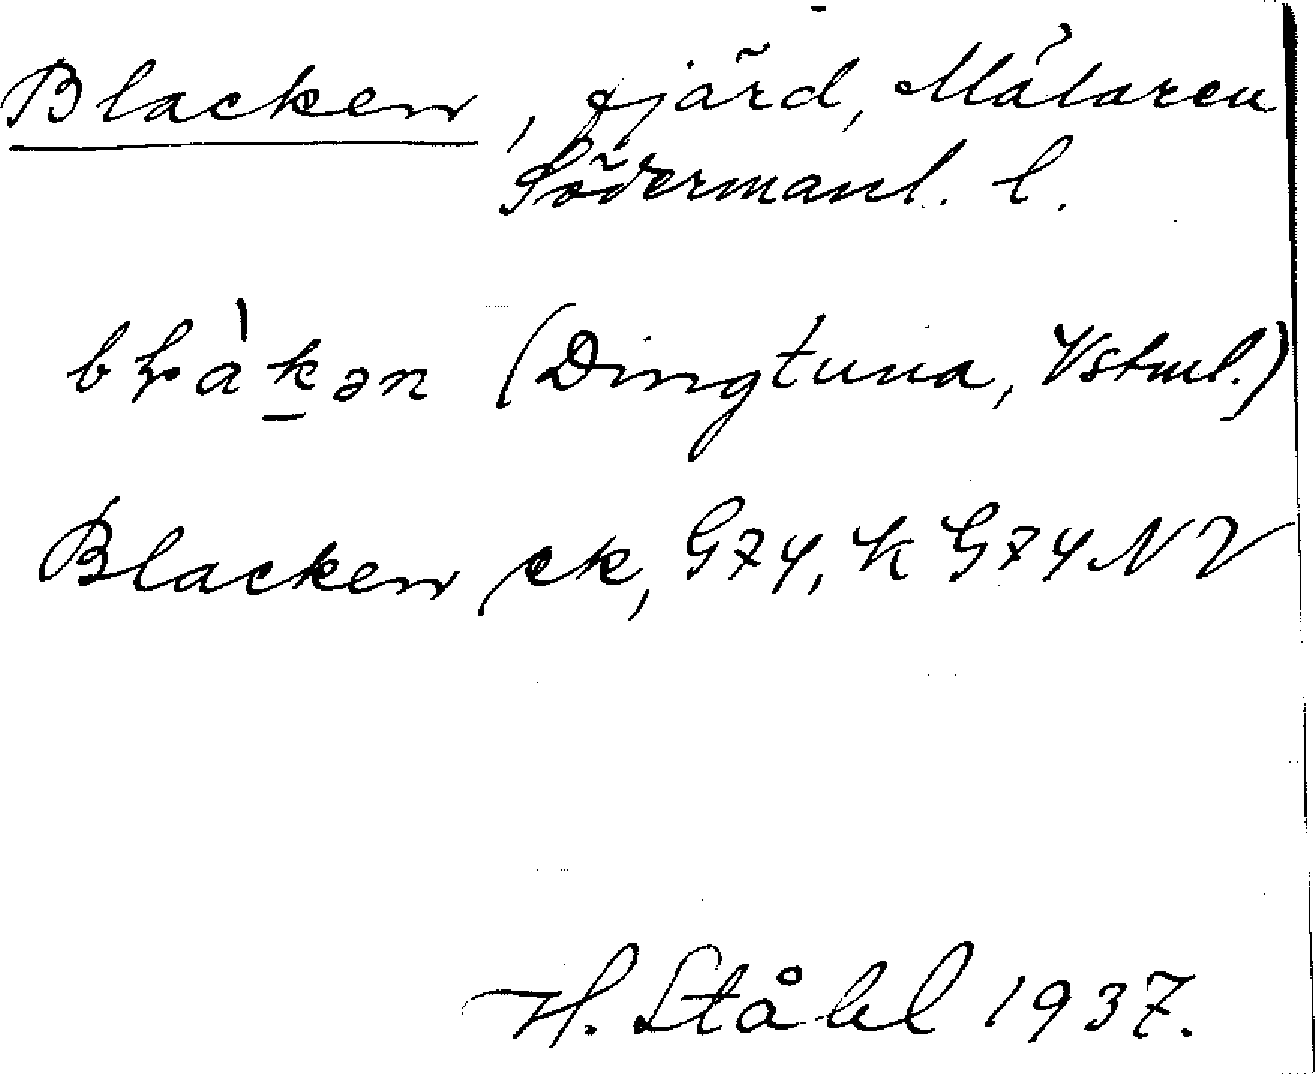 Blacken, fjärd, Mälaren
Södermanl. l.
bḷàk̠ən (Dingtuna, Vstml.)
Blacken ek, G74, K G74 NV
H. Ståhl 1937.